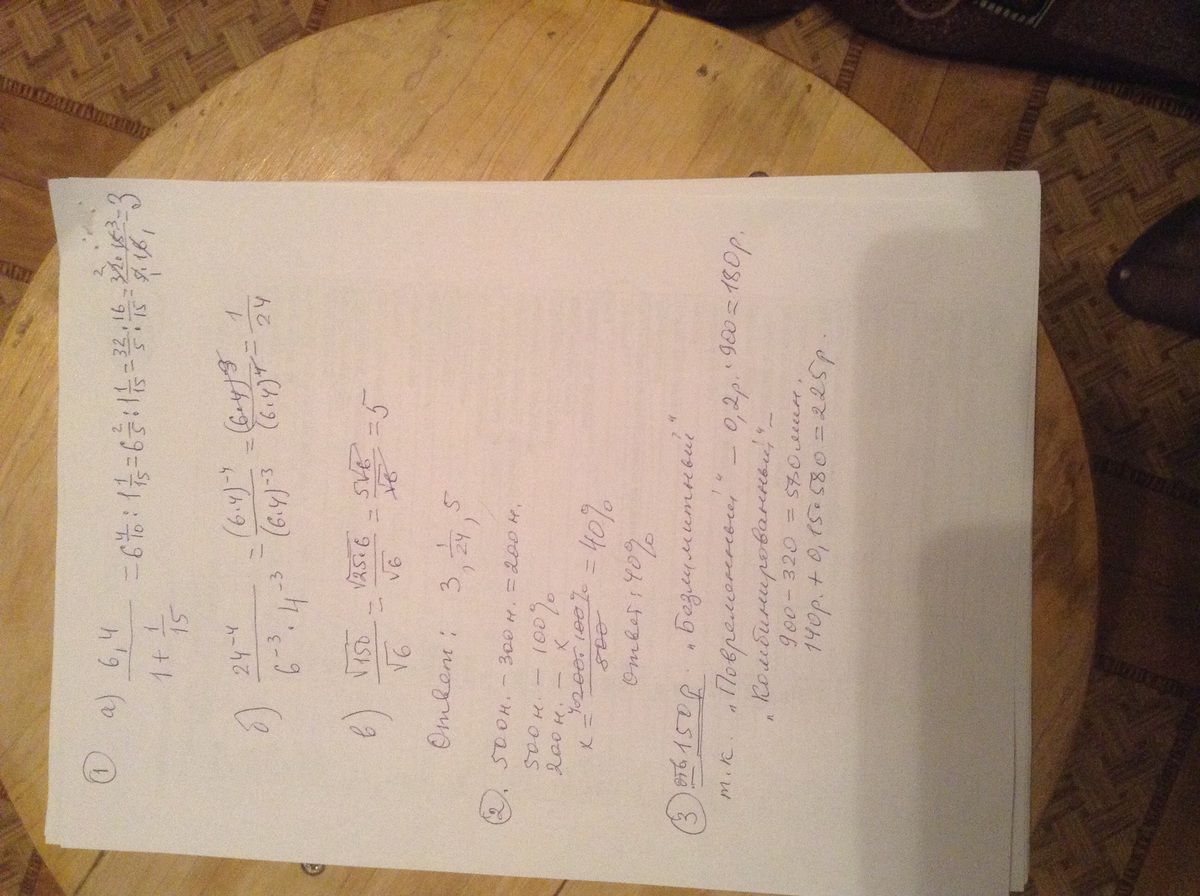 ① а) 6,4 / (1 + 1/15) = 6 4/10 : 1 1/15 = 6 2/5 : 1 1/15 = 32/5 : 16/15 = (32 · 15) / (5 · 16) = 3
б) 24⁻⁴ / (6⁻³ · 4⁻³) = (6·4)⁻⁴ / (6·4)⁻³ = (6·4)³ / (6·4)⁴ = 1/24
в) √150 / √6 = √25·6 / √6 = 5√6 / √6 = 5
Ответ: 3, 1/24, 5
②. 500н. - 300н. = 200н.
500н. – 100%
200н. – x
x = 200·100% / 500 = 40%
Ответ: 40%
③ отв 150р. „Безлимитный“
т.к. „Повременный“ – 0,2р.·900=180р.
„Комбинированный“ –
900-320 = 570мин.
140р.+0,15·580=225р.